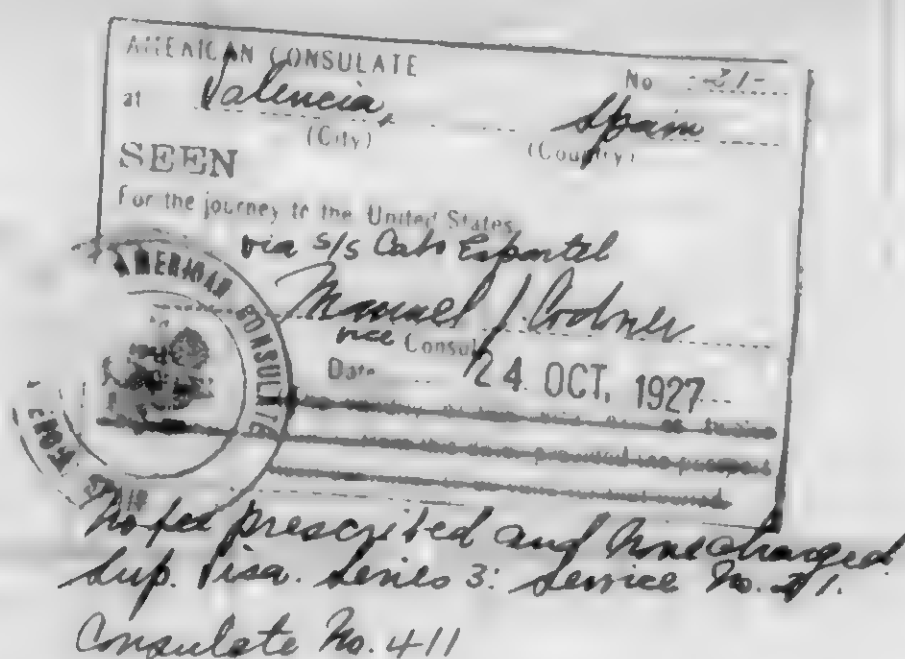 AMERICAN CONSULATE
No. -21-
at Valencia, Spain
(City) (Country)
SEEN
For the journey to the United States
via s/s Cabo Espartel
Manuel J. Codoner
vice Consul
Date 24 OCT. 1927
AMERICAN CONSULATE
No fee prescribed and none charged
Sup. Visa. Series 3: Service No. 21.
Consulate No. 411